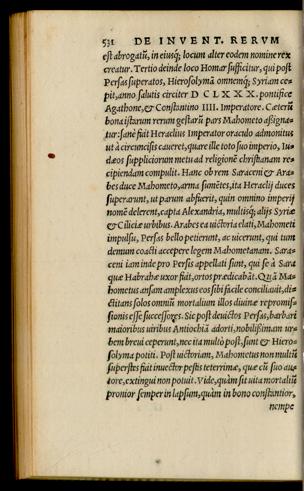 531 DE INVENT. RERVM
est abrogatũ, in eiusq́; locum alter eodem nomine rex
creatur. Tertio deinde loco Homar sufficitur, qui post
Persas superatos, Hierosolymã omnemq́; Syriam ce-
pit, anno salutis circiter D CLXXX. pontifice
Agathone, & Constantino IIII. Imperatore. Cæterũ
bona istarum rerum gestarũ pars Mahometo aßigna-
tur: sanè fiat Heraclius Imperator oraculo admonitus
ut à circuncisis caueret, quare ille toto suo imperio, Iu-
dæos suppliciorum metu ad religionẽ christianam re-
cipiendam compulit. Hanc ob rem Saraceni & Ara-
bes duce Mahometo, arma sumẽtes, ita Heraclij duces
superarunt, ut parum abfuerit, quin omnino imperij
nomẽ delerent, capta Alexandria, multisq́; alijs Syriæ
& Ciliciæ urbibus. Arabes ea uictoria elati, Mahometi
impulsu, Persas bello petierunt, ac uicerunt, qui tum
demum coacti accepere legem Mahometanam. Sara-
ceni iam inde pro Persis appellati sunt, qui se à Sara
quæ Habrahæ uxor fuit, ortos prædicabãt. Quã Ma-
hometus ansam amplexus eos sibi facile conciliauit, di-
ctitans solos omniũ mortalium illos diuinæ repromis-
sionis esse successores. Sic post deuictos Persas, barbari
maioribus uiribus Antiochiã adorti, nobilißimam ur-
bem breui ceperunt, nec ita multò pòst, sunt & Hiero-
solyma potiti. Post uictoriam, Mahometus non multũ
superstes fuit inuector pestis teterrimæ, quæ cũ suo au-
tore, extingui non potuit. Vide, quàm sit uita mortaliũ
pronior semper in lapsum, quàm in bono constantior,
nempe